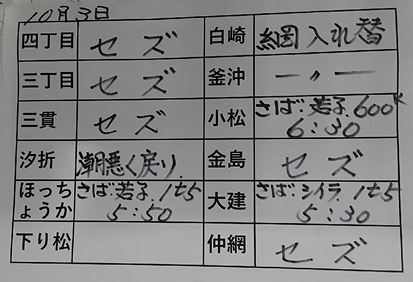 10月3日
四丁目 セズ 白崎 網入れ替
三丁目 セズ 釜沖 ー〃ー
三貫 セズ 小松 さば.若子.600K
6:30
汐折 潮悪く戻り 金島 セズ
ほっち さば.若子.1t5 大建 さば.シイラ.1t5
ょうか 5:50 5:30
下り松 仲網 セズ